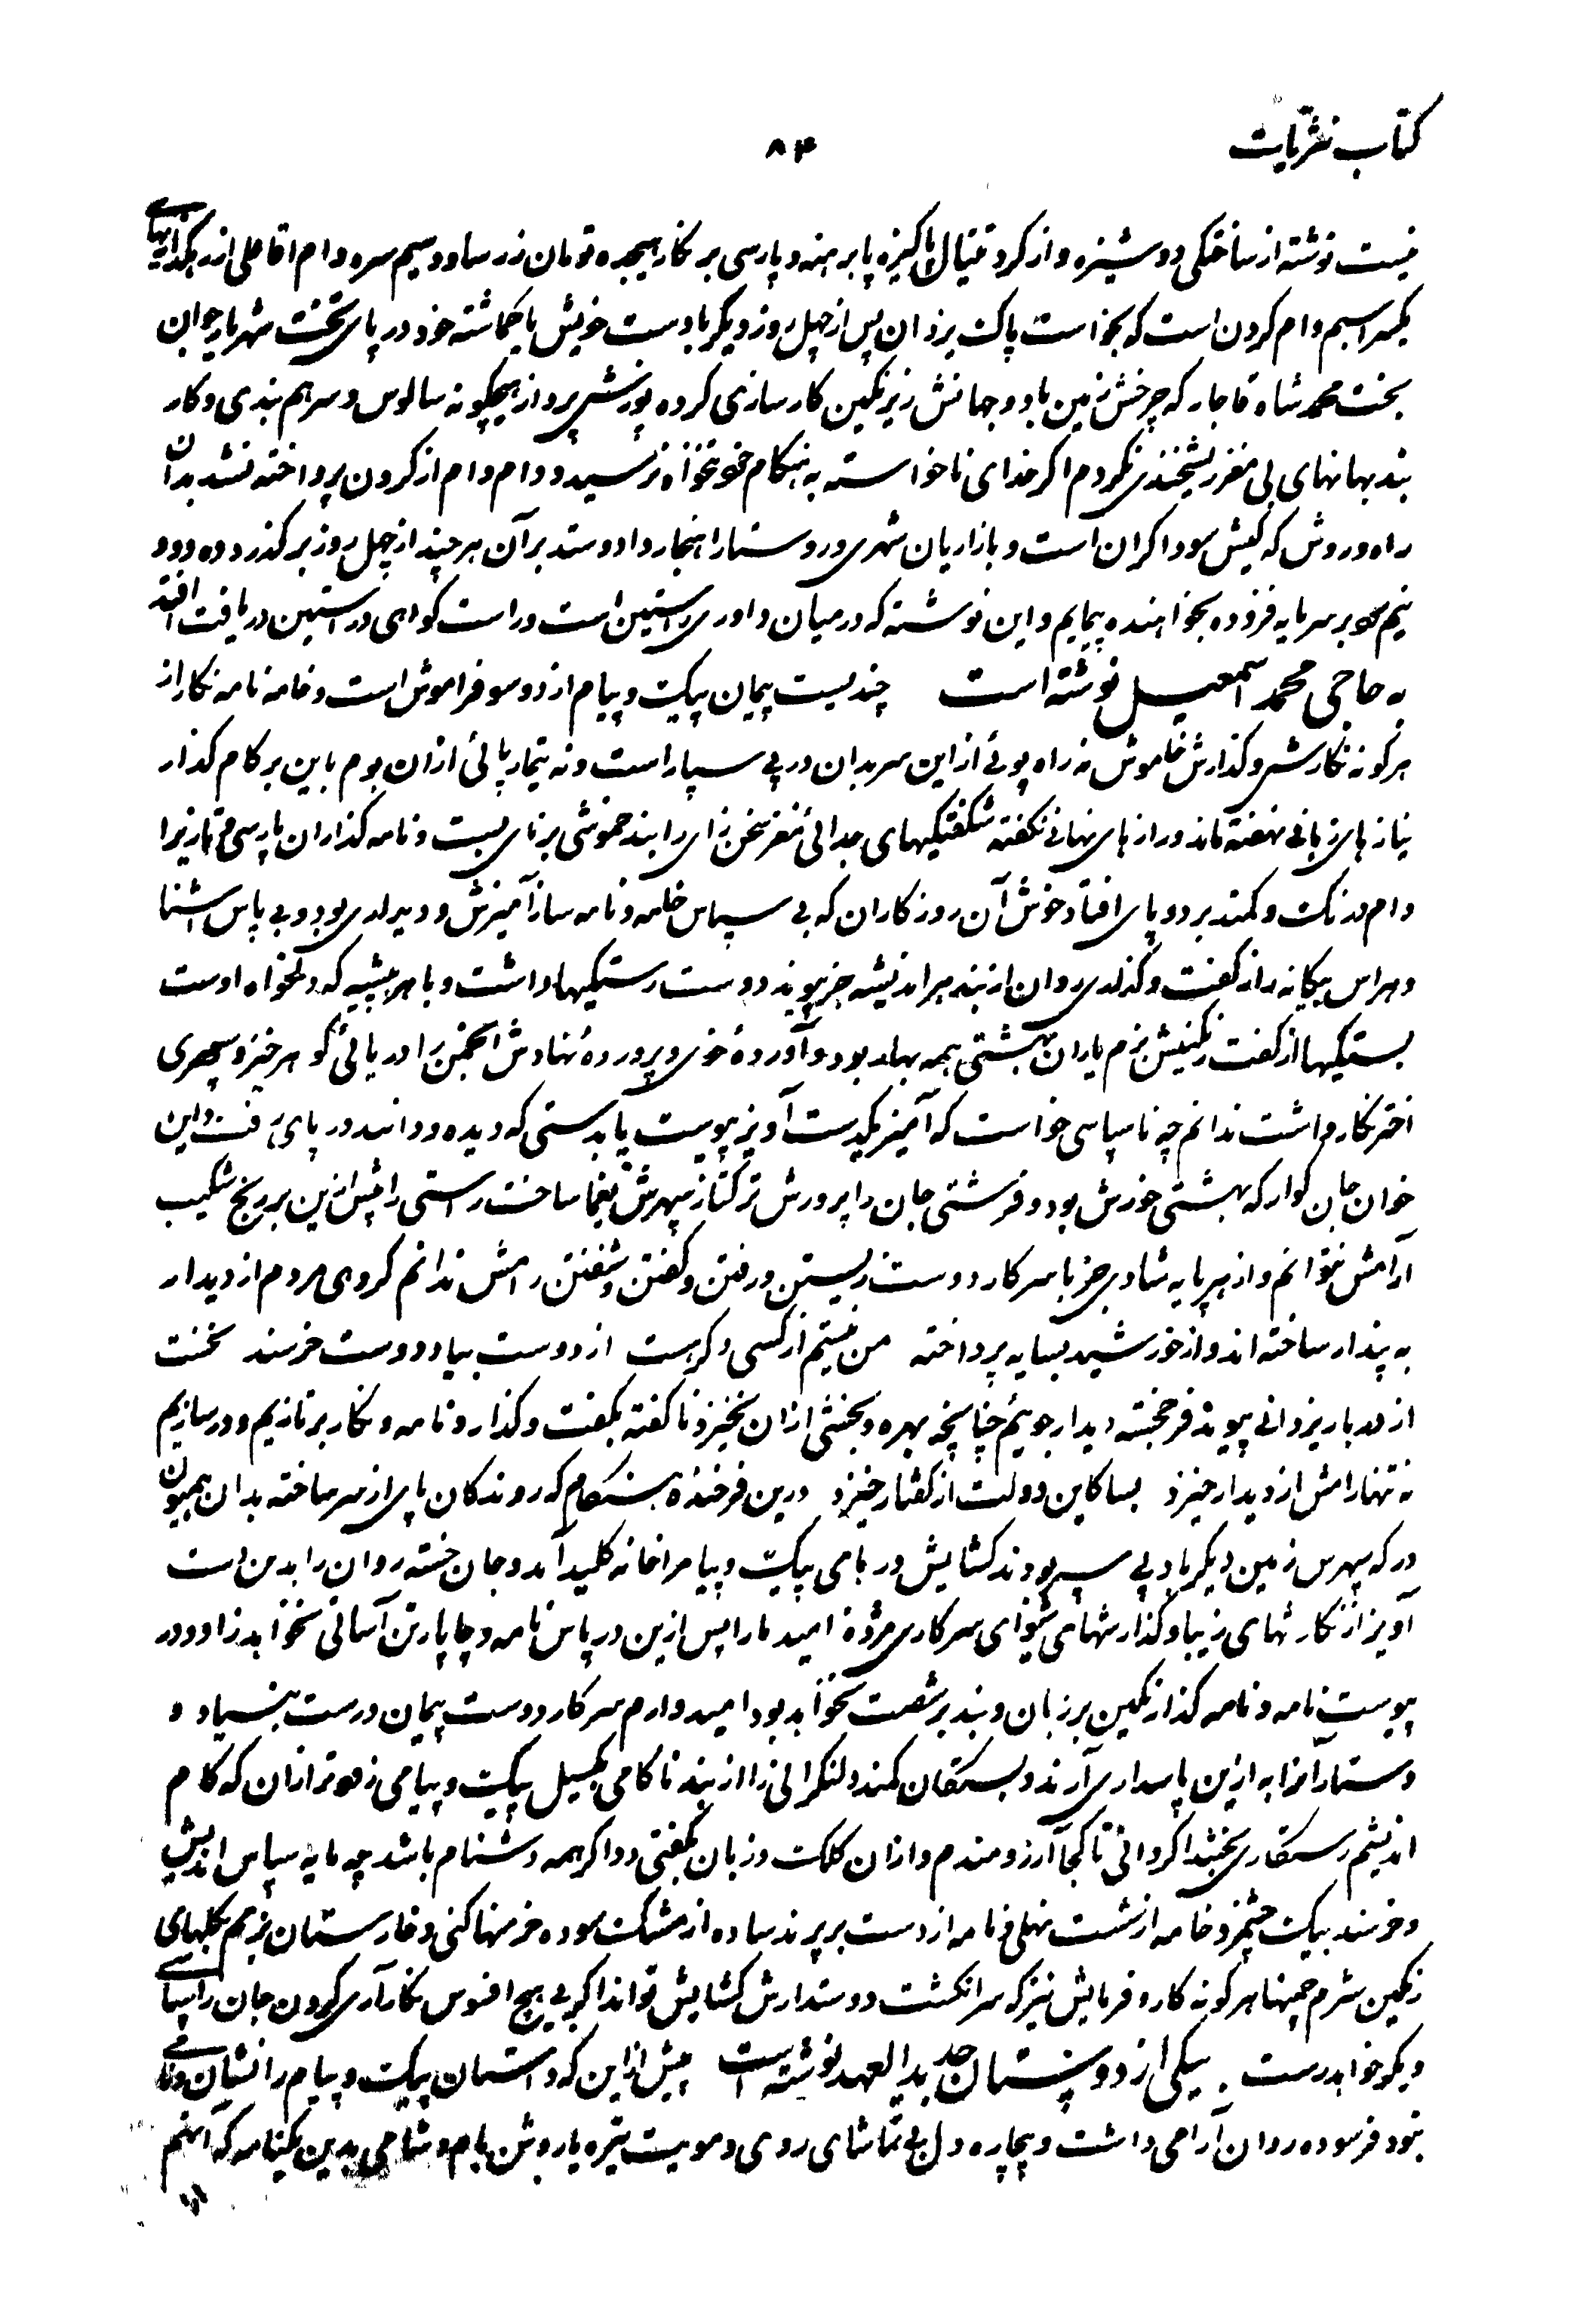 کتاب نثریات
۸۴
نیست نوشته از ساختگی دوشیزه و از کرد پاکیزه پا برهنه و پارسی بر نگار هیجده تومان زر سا و سیم سره وام اقاعلی از
یکسر اسیم وام کردن است که بخواست پاک یزدان پس از چهل روز دیگر با دست خویش یا کماشته خود در پای تخت شهریار جوان
بخت محمد شاه قاجار که چرخش زمین باد و جهانش زیر نگین کارسازی کرده پوزش پرداز هیچگونه سالوس و سرهم بندی و کار
بند بهانهای بی مغز ریشخندی نگردم اگر خدای ناخواسته به هنگام خود تنخواه نرسید و دام وام از گردن پرداخته نشد بدان
راه و روش که کیش سوداگران است و بازاریان شهری و روستا را هنجار داد و ستد بر آن هر چند از چهل روز برگذرد ده دو و
نیم سود بر سرمایه فزوده بخواهنده پیمایم و این نوشته که در میان داوری راستین است و راست گواهی در آستین دریافت افتد
به حاجی محمد اسمعیل نوشته است چندیست پیمان پیک و پیام از دو سو فراموش است و خامه نامه نگار از
هرگونه نگارش و گذارش خاموش نه راه پوئی از این سر بدان در پی سپار است و نه تیمار پائی از ان بوم باین بر گام گذار
نیازهای زبانی نهفته ماند و رازهای نهانی نگفته شگفتگیهای جدائی مغز سخن زای را بند خموشی بر نای بست و نامه گذاران پارسی را
دام درنگ و کمند بر دو پای افتاد خوش آن روزگاران که بی سپاس خامه و نامه ساز آمیزش و دید بود و بی پاس اشنا
و هراس بیگانه راز گفت و روان از بند هر اندیشه جز پیوند دوست رستگیها داشت و با هر پیشه که دلخواه اوست
بستگیها از گفت رنگینش بزم یاران بهشتی همه بهار بود و آورده خوی و پرورده نهادش انجمن را دریائی گوهرخیز و سپهری
اختر نگار داشت ندانم چه ناسپاسی خواست که آمیز یکدست آویز پیوست یا بدستی که دیده و دانند در پای رفت و این
خوان جان گوار که بهشتی خورش بود و فرشتی جان را پرورش ترکتاز سپهرش یغما ساخت راستی را پیش ازین بر رنج شکیب
آرامش نتوانم و از هر پایه شادی جز با سرکار دوست زیستن و رفتن و گفتن و شفتن رامش ندانم گروهی مردم از دیدار
به پندار ساخته اند و از خورشید بسایه پرداخته من نیستم ار کسی دگر هست از دوست بیاد دوست خرسند نخست
از دربار یزدانی پیوند فرخجسته دیدار جوئیم چنانچه بهره و بخشی از ان نخیزد ناگفته بگفت و گذار و نامه و نگار برتازیم و درسازیم
نه تنها رامش از دیدار خیزد بسا کاین دولت از گفتار خیزد درین فرخنده هنگام که روندگان پای از سر ساخته بدان همیون
درگه سپهرس زمین دیگر باد پی سپر بودند گشایش در بامی پیک و پیام را خامه کلید آمد و جان خسته روان را بدین دست
آویز از نگارشهای زیبا و گذارشهای شیوای سرکاری مژده امید ما را پس ازین در پاس نامه و چاپار تن آسانی نخواهد زاد و در
پیوست نامه و نامه گذار نگین بر زبان و بند بر شصت نخواهد بود امیدوارم سرکار دوست پیمان درست بنیاد و
دستار آنرا به ازین پاسداری آرند و بستگان کمند را از بند ناکامی بگسیل پیک و پیامی زودتر ازان که کام
اندیشم رستگاری بخشد اگر دانی تا کجا آرزومندم و ازان کلک و زبان بگفتی دو اگر همه دشنام باشد چه مایه سپاس اندیش
و خرسند بیک چشمزد خامه از شست نهلی و نامه از دست بر پرند ساده از مشک سوده خرمنها کنی و خارستان بزمم بگلهای
رنگین شرم چمنها هرگونه کار و فرمایش نیز که سر انگشت دوستدارش گشایش تواند اگر بی هیچ افسوس نگار آری گردن جان را سپاسی
دیگر خواهد رست. بیکی از دوستان جدید العهد نوشته است پیش از این که داستان پیک و پیام را نشان و نامی
نبود فرسوده روان آرامی داشت و بیچاره دل بی تماشای روی و مویت تیره یا روشن بام و شامی بدین یکنامه که